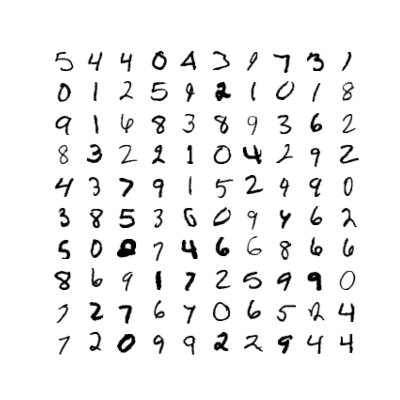 5 4 4 0 4 3 9 7 3 1
0 1 2 5 9 2 1 0 1 8
9 1 6 8 3 8 9 3 6 2
8 3 2 2 1 0 4 2 9 2
4 3 7 9 1 5 2 9 9 0
3 8 5 3 6 0 9 4 6 2
5 0 7 4 6 6 8 6 6
8 6 9 1 7 2 5 9 9 0
7 2 7 6 4 0 6 5 2 4
7 2 0 9 9 2 2 9 4 4